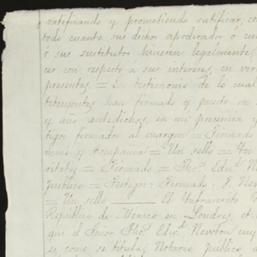 ratificando y prometiendo ratificar, co
todo cuanto sus dichos apoderado ó
ó sus sustitutos hicieren legalmente
cer con respecto á sus intereses en vir
presentes = En testimonio de lo cual
tituyentes han firmado y puesto su
y año antedichos, en mi presencia y
tigos firmados al margen = Firmado
y Compañia = Un sello =
= Firmado = Thos. Edwd. N
publico = Testigos: Firmado: J. New
= Un sello ____ El Infrascrito
Republica de Mexico en Londres, et
que el Señor Thos. Edwd. Newton cuy
se, como se titula, Notario publico